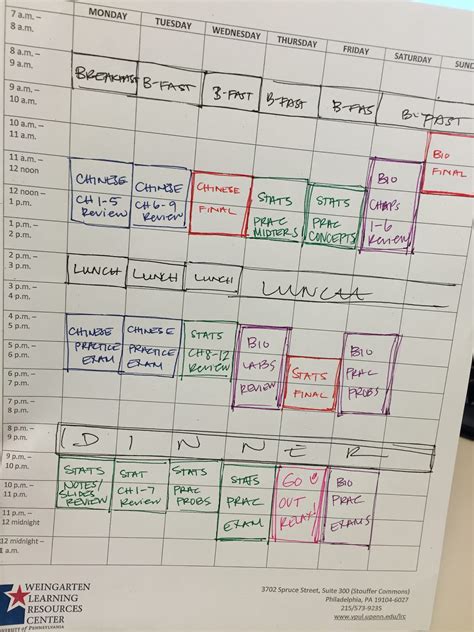 MONDAY TUESDAY WEDNESDAY THURSDAY FRIDAY SATURDAY SUND
7 a.m. –
8 a.m.
8 a.m. –
9 a.m.
BREAKFAST B-FAST B-FAST B-FAST B-FAS B-FAST
9 a.m. –
10 a.m.
10 a.m. –
11 a.m.
BIO
FINAL
11 a.m. –
12 noon
CHINESE CHINESE CHINESE STATS STATS BIO
12 noon –
1 p.m.
CH 1-5 CH 6-9 FINAL PRAC PRAC CHAPS
Review Review MIDTERS CONCEPTS 1-6
Review
1 p.m. –
2 p.m.
2 p.m. –
3 p.m.
LUNCH LUNCH LUNCH LUNCH
3 p.m. –
4 p.m.
4 p.m. –
5 p.m.
CHINESE CHINESE STATS BIO BIO
5 p.m. –
6 p.m.
PRACTICE PRACTICE CH 8-12 LABS STATS PRAC
EXAM EXAM Review REVIEW FINAL PROBS
6 p.m. –
7 p.m.
7 p.m. –
8 p.m.
8 p.m. –
9 p.m.
DINNER
9 p.m. –
10 p.m.
STATS STAT STATS STATS GO BIO
10 p.m. –
11 p.m.
NOTES/ CH 1-7 PRAC PRAC OUT PRAC
SLIDES Review PROBS EXAM RELAX EXAMS
REVIEW
11 p.m. –
12 midnight
12 midnight –
1 a.m.
WEINGARTEN
LEARNING
RESOURCES
CENTER
UNIVERSITY OF PENNSYLVANIA
3702 Spruce Street, Suite 300 (Stouffer Commons)
Philadelphia, PA 19104-6027
215/573-9235
www.vpul.upenn.edu/lrc